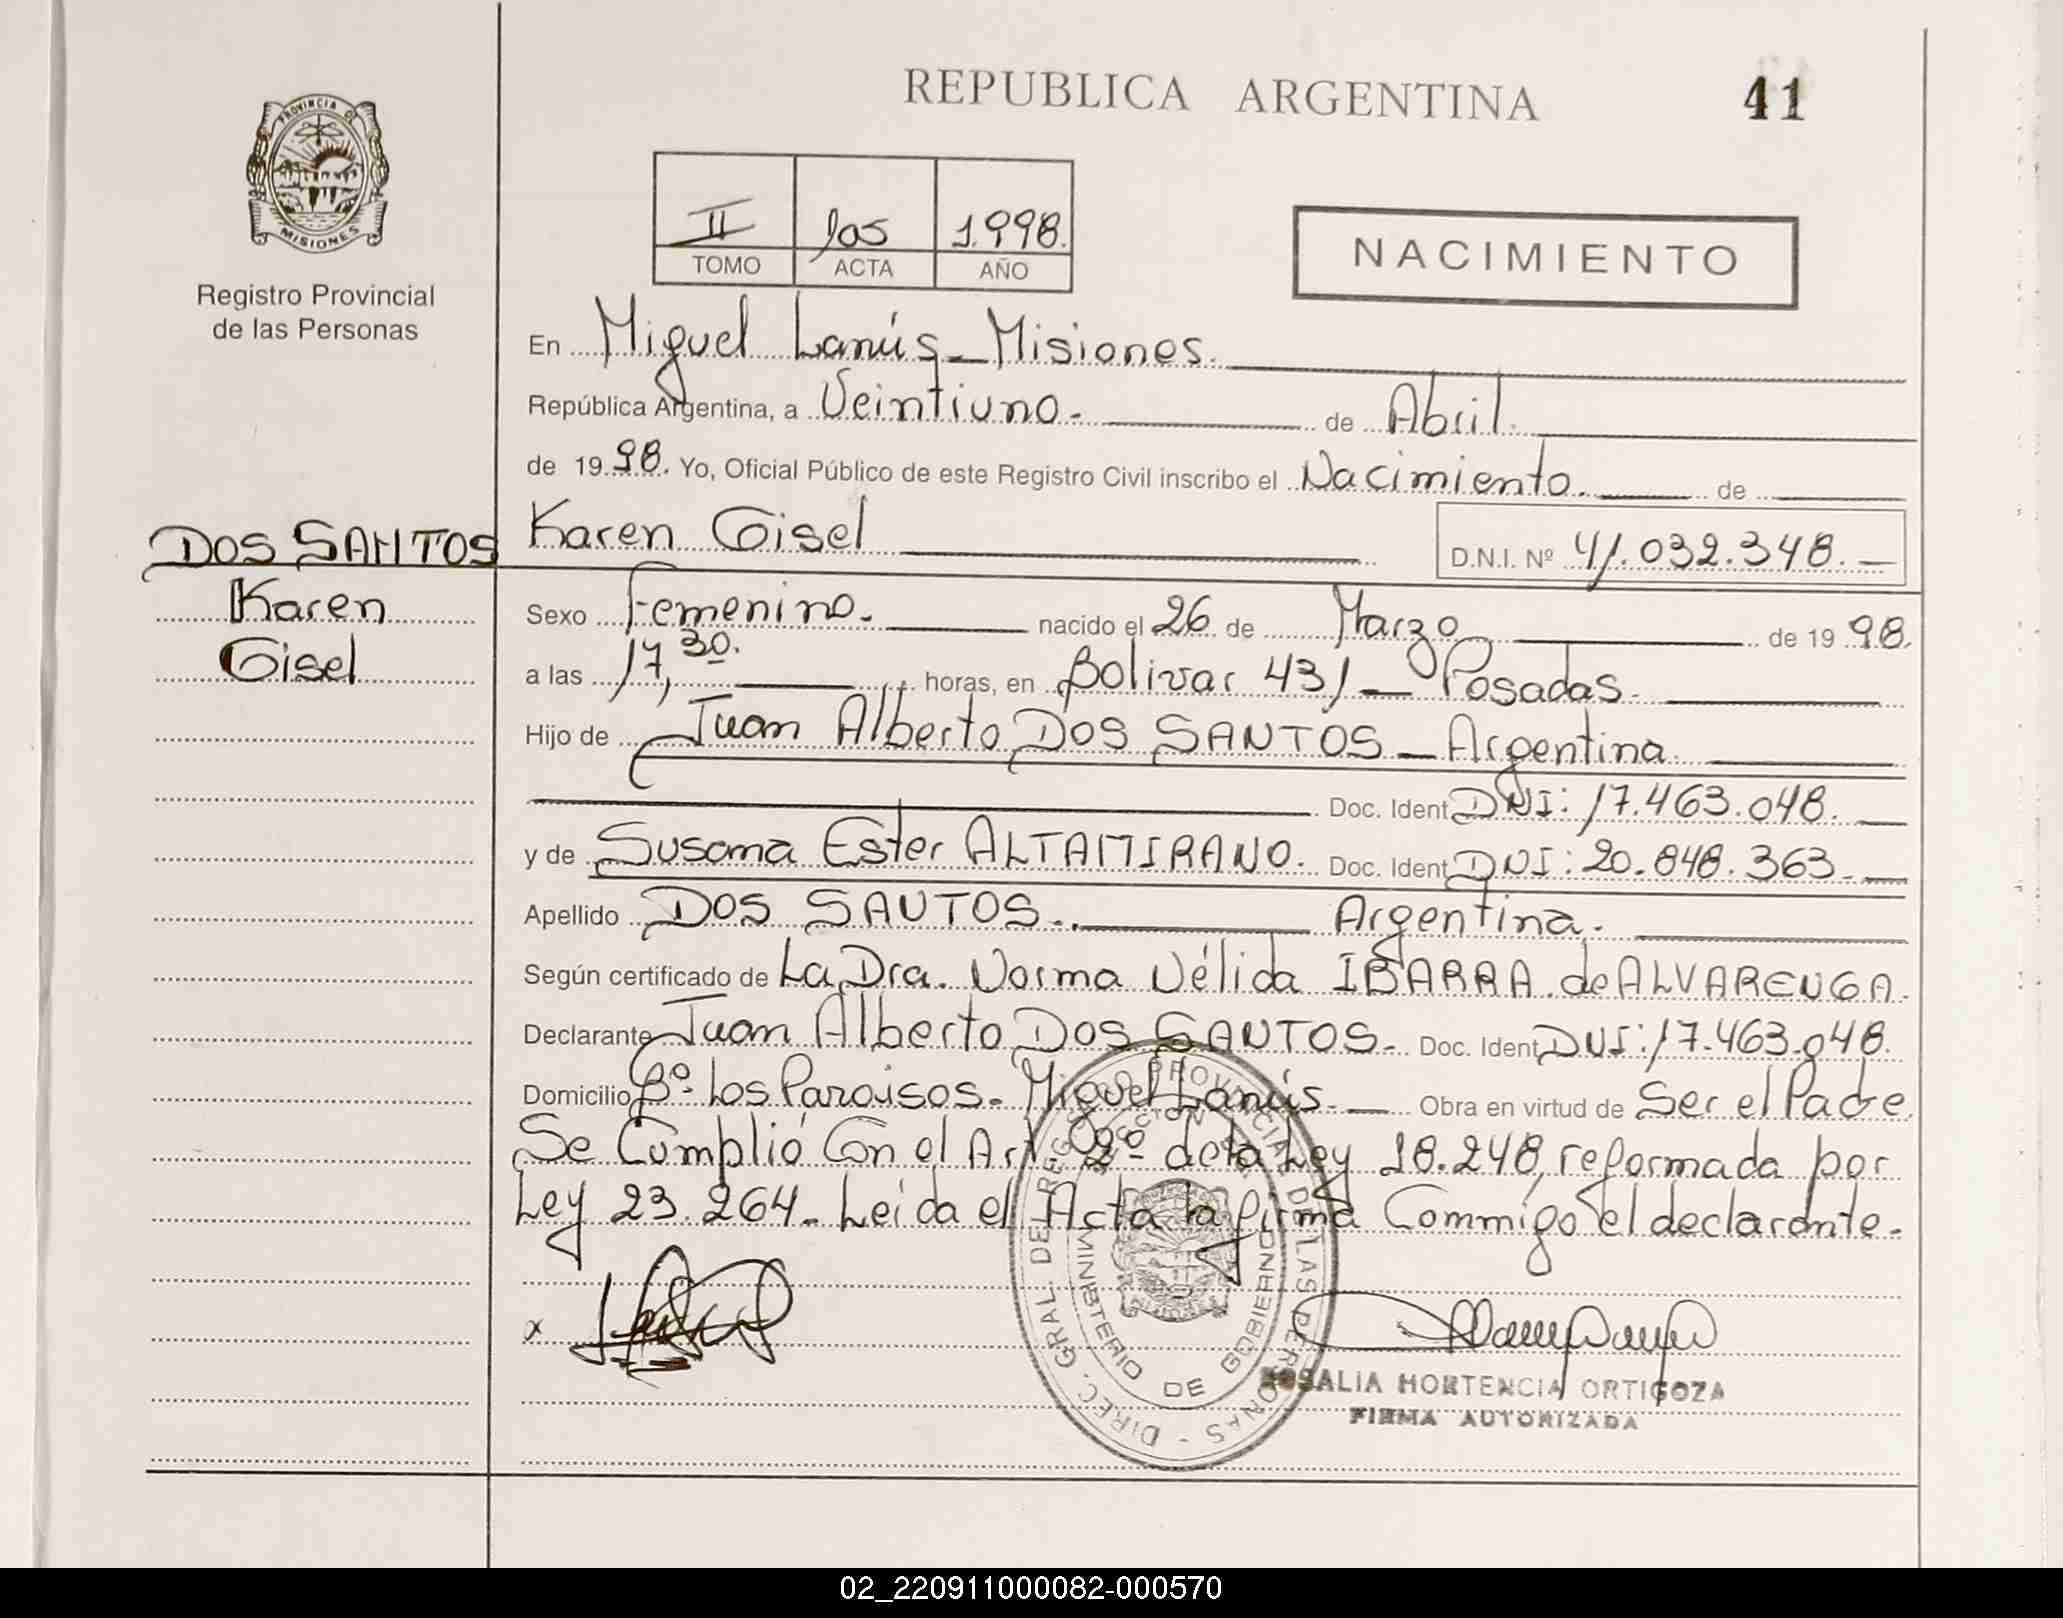 REPUBLICA ARGENTINA
41
PROVINCIA DE
MISIONES
Registro Provincial
de las Personas
II 105 1.998.
TOMO ACTA AÑO
NACIMIENTO
En Miguel Lanús - Misiones.
República Argentina, a Veintiuno. de Abril.
de 19 98. Yo, Oficial Público de este Registro Civil inscribo el Nacimiento. de
DOS SANTOS
Karen
Gisel
Karen Gisel D.N.I. Nº 41.032.348.
Sexo Femenino. nacido el 26 de Marzo de 19 98.
a las 17,30. horas, en Bolivar 431 - Posadas.
Hijo de Juan Alberto DOS SANTOS - Argentina.
Doc. Ident DNI: 17.463.048.
y de Susana Ester ALTAMIRANO. Doc. Ident DNI: 20.848.363.
Apellido DOS SANTOS. Argentina.
Según certificado de La Dra. Norma Nélida IBARRA de ALVARENGA.
Declarante Juan Alberto DOS SANTOS. Doc. Ident DNI: 17.463.048.
Domicilio Bº. Los Paraisos. Miguel Lanús. Obra en virtud de Ser el Padre
Se Cumplió Con el Art 2º de la Ley 18.248, reformada por
Ley 23.264. Leida el Acta la firma Commigo el declarante.
x
DIREC. GRAL. DE REG PROVINCIAL DE LAS PERSONAS
MINISTERIO DE GOBIERNO
ROSALIA HORTENCIA ORTIGOZA
FIRMA AUTORIZADA
02_220911000082-000570